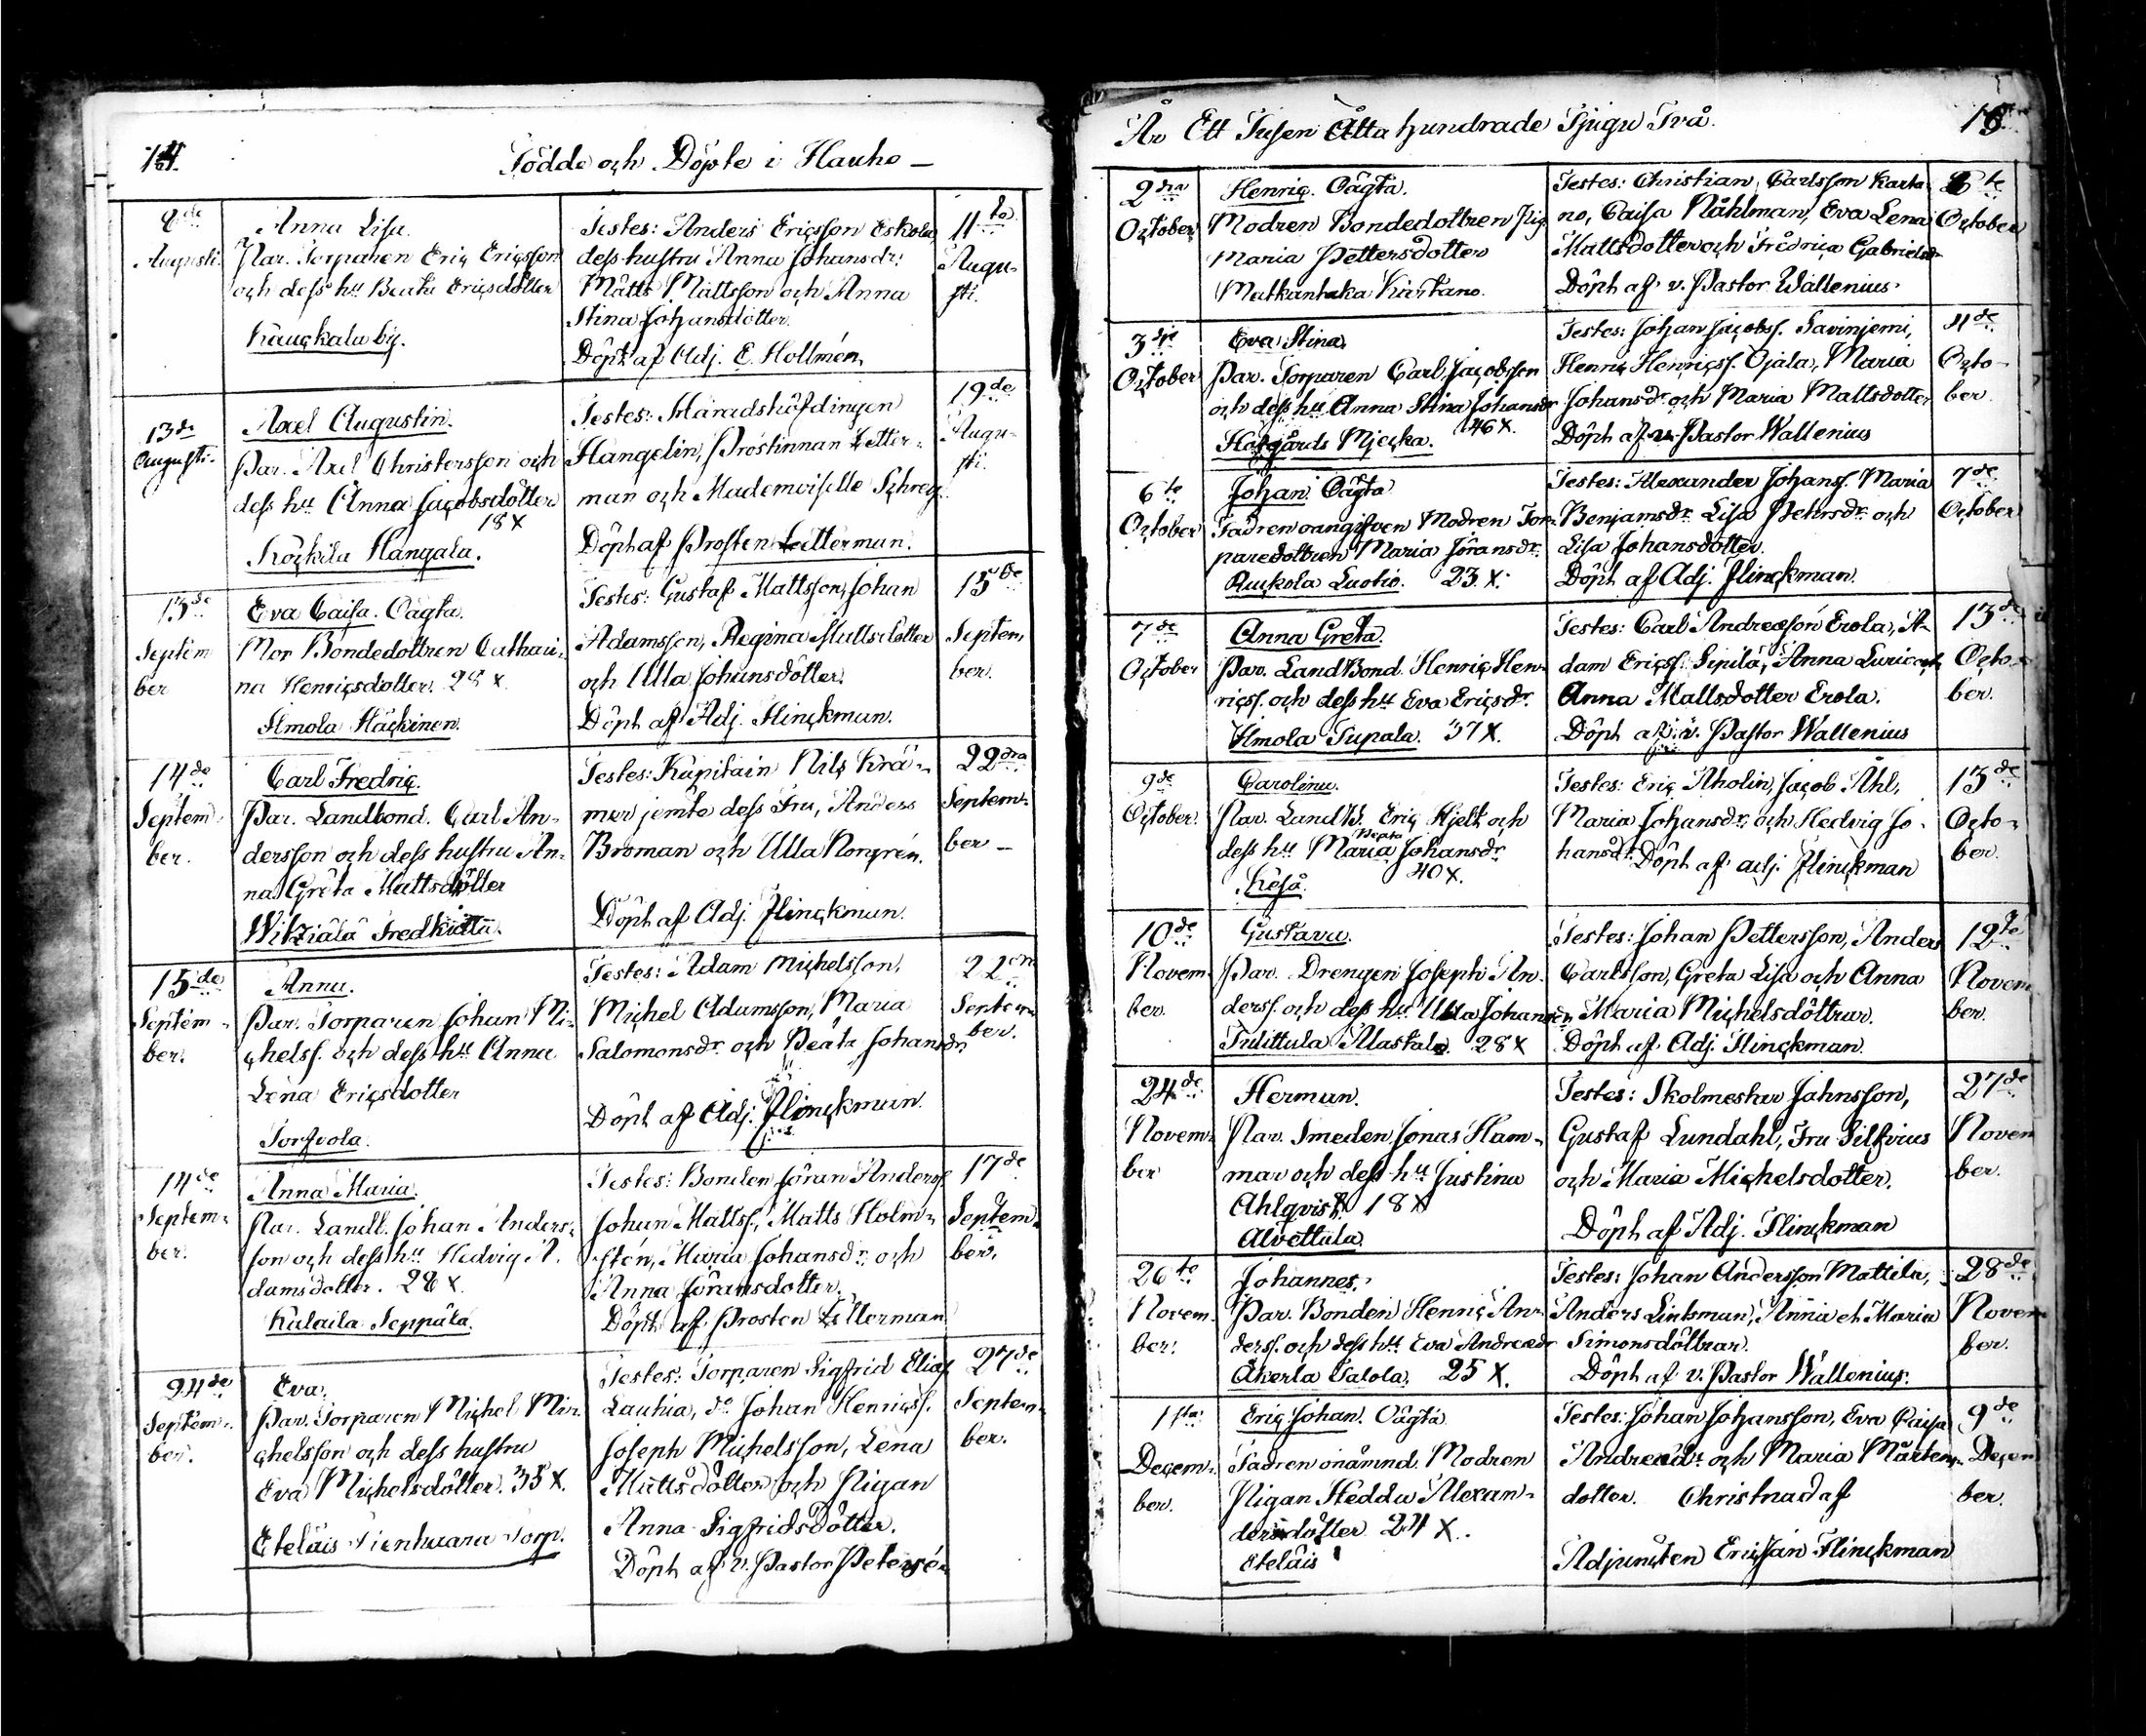 14.
Födde och Döpte i Hauho —
8de
Augusti.
Anna Lisa.
Par. Torparen Eric Ericsson
och dess hu Beata Ericsdotter
Kauckala by.
Testes: Anders Ericsson Eskola
dess hustru Anna Johansdr.
Matts Mattsson och Anna
Stina Johansdotter.
Döpt af Adj. E. Hollmén.
11te
Augu-
sti.
13de
Augusti.
Axel Augustin.
Par. Axel Christersson och
dess hu Anna Jacobsdotter
18 X
Kockila Hangala.
Testes: Häradshöfdingen
Hangelin, Prostinnan Letter-
man och Mademoiselle Schrey.
Döpt af Prosten Letterman.
19de
Augu-
sti.
13de
Septem
ber
Eva Caisa. Oägta.
Mor Bondedottren Cathari-
na Henricsdotter. 28 X.
Ilmola Häckinen.
Testes: Gustaf Mattsson, Johan
Adamsson, Regina Mattsdotter
och Ulla Johansdotter.
Döpt af Adj. Flinckman.
15de
Septem
ber.
14de
Septem-
ber.
Carl Fredric.
Par. Landbond. Carl An-
dersson och dess hustru An-
na Greta Mattsdotter
Witziälä Fredkulla.
Testes: Kapitain Nils Krä-
mer jemte dess Fru, Anders
Broman och Ulla Norgrén.
Döpt af Adj. Flinckman.
22dra
Septem-
ber —
15de
Septem-
ber.
Anna.
Par. Torparen Johan Mi-
chelss. och dess hu Anna
Lena Ericsdotter
Torfvola.
Testes: Adam Michelsson,
Michel Adamsson, Maria
Salomonsdr. och Beata Johansdr.
Döpt af Adj. Flinckman.
22dra
Septem
ber.
14de
Septem-
ber.
Anna Maria.
Par. Landb. Johan Anders-
son och dess hu Hedvig A-
damsdotter. 28 X.
Kulaila Seppälä.
Testes: Bonden Jöran Anderss.
Johan Mattss., Matts Holm-
stén, Maria Johansdr. och
Anna Jöransdotter.
Döpt af Prosten Letterman
17de
Septem-
ber.
24de
Septem-
ber.
Eva.
Par. Torparen Michel Mi-
chelsson och dess hustru
Eva Michelsdotter. 35 X.
Eteläis Torp.
Testes: Torparen Sigfrid Elias
Lauhia, do Johan Henricss.
Joseph Michelsson, Lena
Mattsdotter och Pigan
Anna Sigfridsdotter.
Döpt af v. Pastor Petersén
27de
Septem-
ber.
År Ett Tusen Åtta hundrade Tjugu Två.
15.
2dra
October
Henric. Oägta.
Modren Bondedottren Pig.
Maria Pettersdotter
Matkantaka Kartano.
Testes: Christian Carlsson Karta-
no, Caisa Råhlman, Eva Lena
Mattsdotter och Fredrica Gabrielsdr
Döpt af v. Pastor Wallenius.
6te
October
3dje
October
Eva Stina.
Par. Torparen Carl Jacobsson
och dess hu Anna Stina Johansdr
Hofgårds Mjecka. 46 X.
Testes: Johan Jacobss. Savinjemi,
Henric Henricss. Ojala, Maria
Johansdr och Maria Mattsdotter
Döpt af v. Pastor Wallenius
11de
Octo-
ber
6te
October
Johan. Oägta
Fadren oangifven Modren Tor-
paredottren Maria Jöransdr.
Auckola Luotio. 23 X.
Testes: Alexander Johanss. Maria
Benjamsdr. Lisa Pehrsdr. och
Lisa Johansdotter.
Döpt af Adj. Flinckman.
7de
October
7de
October
Anna Greta.
Par. Land Bond. Henric Hen-
ricss. och dess hu Eva Ericsdr.
Ilmola Tupala. 37 X.
Testes: Carl Andreæson Erola, A-
dam Ericss. Sipilä, Anna Luric och
Anna Mattsdotter Erola.
Döpt af v. Pastor Wallenius
13de
Octo-
ber.
9de
October.
Carolina.
Par. Landtb. Eric Hjelt och
Beata
dess hu Maria Johansdr.
40 X.
Testes: Eric Aholin, Jacob Åhl,
Maria Johansdr. och Hedvig Jo-
hansdr. Döpt af adj. Flinckman
13de
Octo-
ber.
10de
Novem-
ber.
Gustava.
Par. Drengen Joseph An-
derss. och dess hu Ulla Johansdr
Tulittula Alastalo. 28 X
Testes: Johan Pettersson, Anders
Carlsson, Greta Lisa och Anna
Maria Michelsdöttrar.
Döpt af Adj. Flinckman.
12te
Novem
ber.
24de
Novem-
ber
Herman.
Par. Smeden Jonas Ham-
mar och dess hu Justina
Ahlqvist. 18 X
Alvettula.
Testes: Skolmestar Jahnsson,
Gustaf Lundahl, Fru Silfvius
och Maria Michelsdotter.
Döpt af Adj. Flinckman
27de
Novem
ber.
26te
Novem-
ber.
Johannes.
Par. Bonden Henric An-
derss. och dess hu Eva Andreædr
Åkerla Talola. 25 X.
Testes: Johan Andersson Mattila,
Anders Linkman, Anna et Maria
Simonsdöttrar.
Döpt af v. Pastor Wallenius.
28de
Novem
ber.
1sta
Decem-
ber.
Eric Johan. Oägta
Fadren onämnd. Modren
Pigan Hedda Alexan-
dersdotter 24 X.
Eteläis
Testes: Johan Johansson, Eva Caisa
Andreædr och Maria Mårtens-
dotter. Christnad af
Adjuncten Flinckman
9de
Decem
ber.